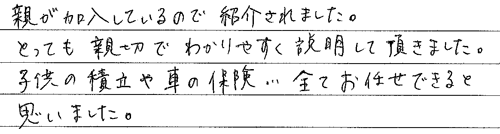 親が加入しているので紹介されました。
とっても親切でわかりやすく説明して頂きました。
子供の積立や車の保険…全てお任せできると
思いました。